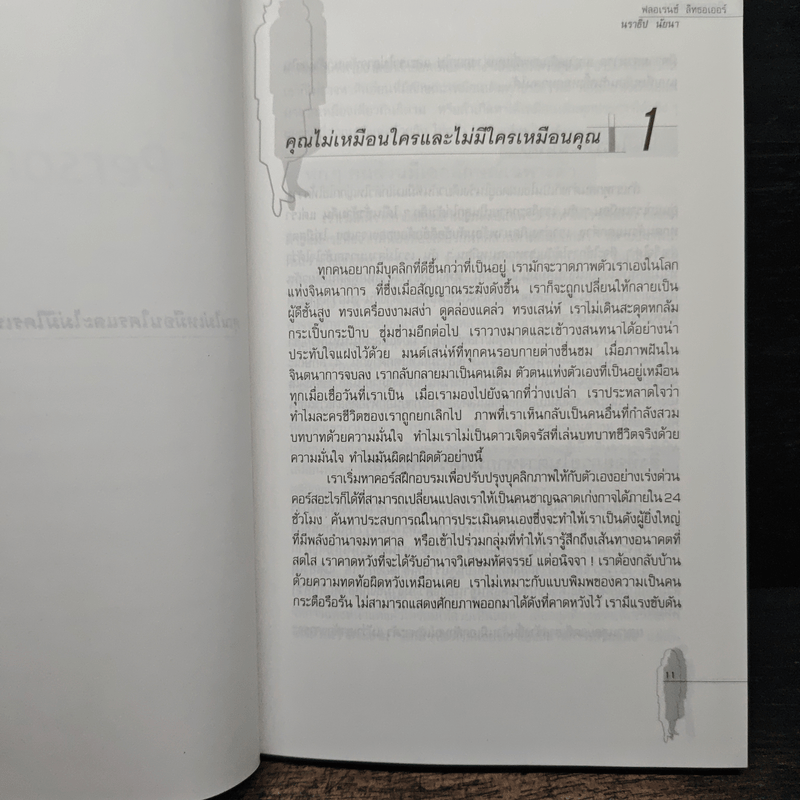 ฟลอเรนซ์ ลิทธอเยอร์
นราธิป นัยนา
คุณไม่เหมือนใครและไม่มีใครเหมือนคุณ 1
ทุกคนอยากมีบุคลิกที่ดีขึ้นกว่าที่เป็นอยู่ เรามักจะวาดภาพตัวเราเองในโลก
แห่งจินตนาการ ที่ซึ่งเมื่อสัญญาณระฆังดังขึ้น เราก็จะถูกเปลี่ยนให้กลายเป็น
ผู้ดีชั้นสูง ทรงเครื่องงามสง่า ดูคล่องแคล่ว ทรงเสน่ห์ เราไม่เดินสะดุดหกล้ม
กระเปิ๊บกระป๊าบ ซุ่มซ่ามอีกต่อไป เราวางมาดและเข้าวงสนทนาได้อย่างน่า
ประทับใจแฝงไว้ด้วย มนต์เสน่ห์ที่ทุกคนรอบกายต่างชื่นชม เมื่อภาพฝันใน
จินตนาการจบลง เรากลับกลายมาเป็นคนเดิม ตัวตนแห่งตัวเองที่เป็นอยู่เหมือน
ทุกเมื่อเชื่อวันที่เราเป็น เมื่อเรามองไปยังฉากที่ว่างเปล่า เราประหลาดใจว่า
ทำไมละครชีวิตของเราถูกยกเลิกไป ภาพที่เราเห็นกลับเป็นคนอื่นที่กำลังสวม
บทบาทด้วยความมั่นใจ ทำไมเราไม่เป็นดาวเจิดจรัสที่เล่นบทบาทชีวิตจริงด้วย
ความมั่นใจ ทำไมมันผิดฝาผิดตัวอย่างนี้
เราเริ่มหาคอร์สฝึกอบรมเพื่อปรับปรุงบุคลิกภาพให้กับตัวเองอย่างเร่งด่วน
คอร์สอะไรก็ได้ที่สามารถเปลี่ยนแปลงเราให้เป็นคนชาญฉลาดเก่งกาจได้ภายใน 24
ชั่วโมง ค้นหาประสบการณ์ในการประเมินตนเองซึ่งจะทำให้เราเป็นดังผู้ยิ่งใหญ่
ที่มีพลังอำนาจมหาศาล หรือเข้าไปร่วมกลุ่มที่ทำให้เรารู้สึกถึงเส้นทางอนาคตที่
สดใส เราคาดหวังที่จะได้รับอำนาจวิเศษมหัศจรรย์ แต่อนิจจา ! เราต้องกลับบ้าน
ด้วยความทดท้อผิดหวังเหมือนเคย เราไม่เหมาะกับแบบพิมพของความเป็นคน
กระตือรือร้น ไม่สามารถแสดงศักยภาพออกมาได้ดังที่คาดหวังไว้ เรามีแรงขับดัน
11